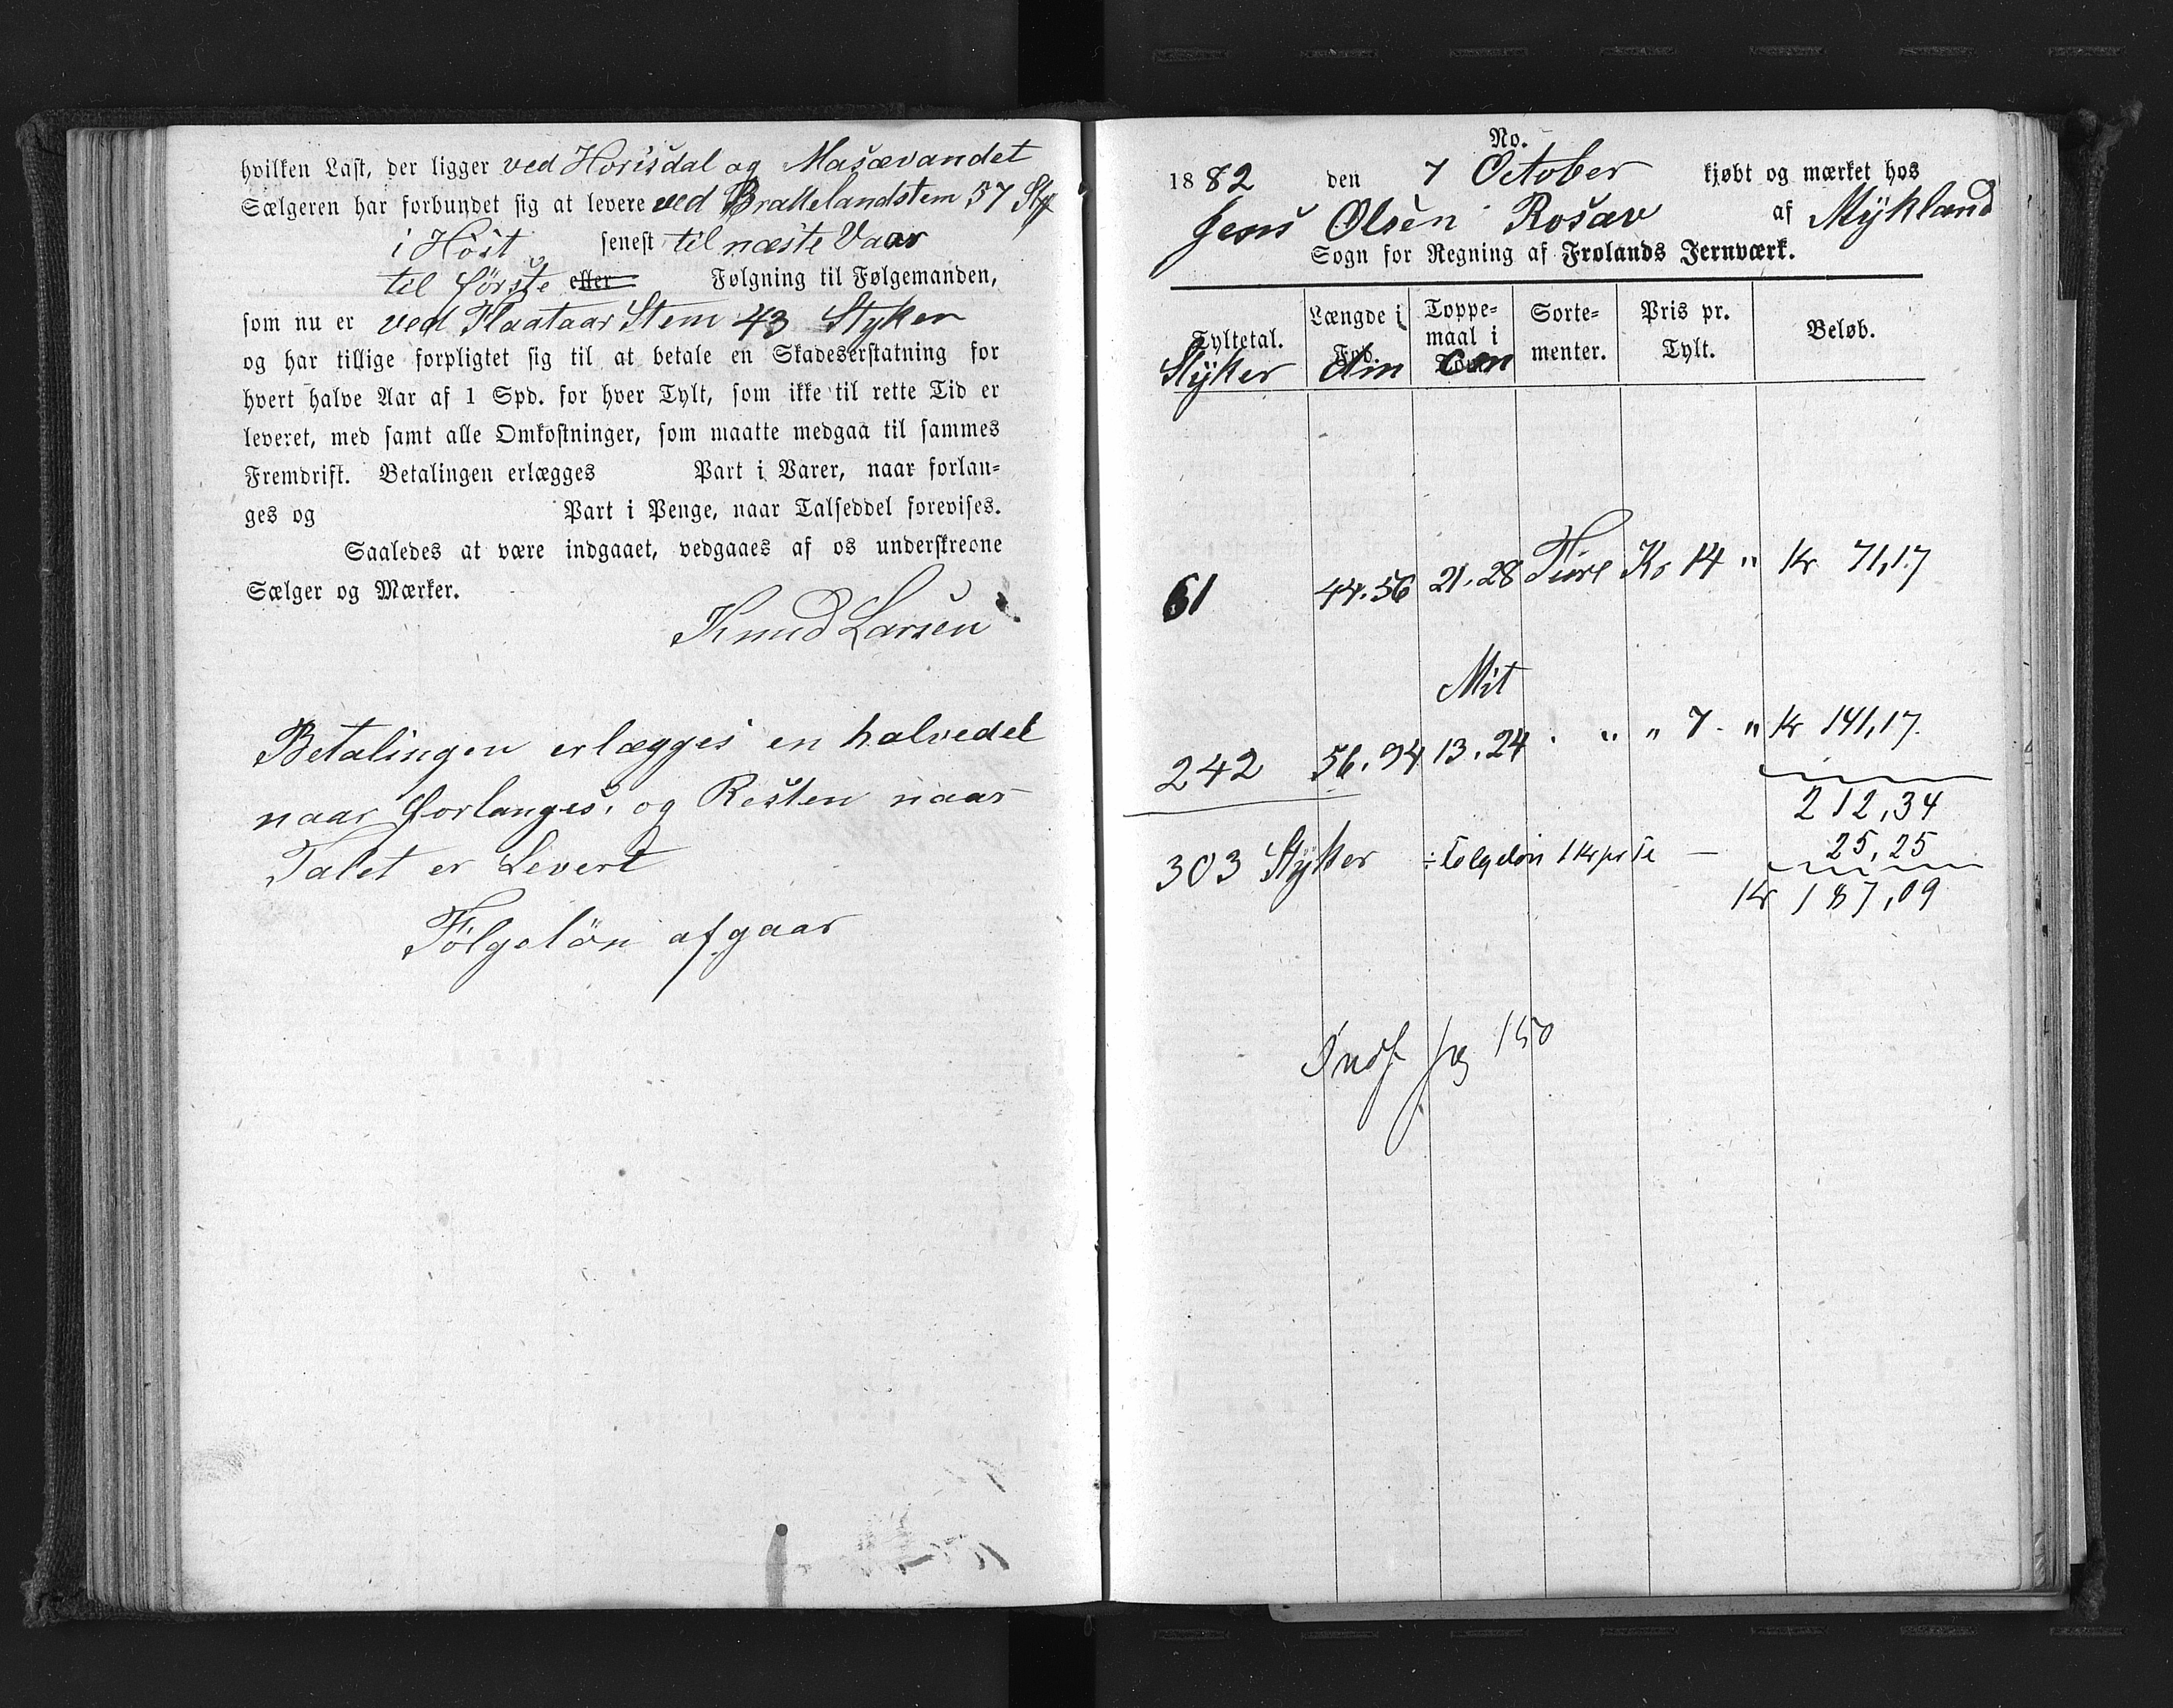 hvilken Last, der ligger ved Horisdal og Masævandet
Sælgeren har forbundet sig at levere ved Brattelandstem 57 Sty
i Höst senest til næste Vaar
til første efter Følgning til Følgemanden,
som nu er ved Flaataar Stem 43 Styker
og har tillige forpligtet sig til at betale en Skadeserstatning for
hvert halve Aar af 1 Spd. for hver Tylt, som ikke til rette Tid er
leveret, med samt alle Omkostninger, som maatte medgaa til sammes
Fremdrift. Betalingen erlægges Part i Varer, naar forlan-
ges og Part i Penge, naar Talseddel forevises.
Saaledes at være indgaaet, vedgaaes af os underskrevne
Sælger og Mærker.
Knud Larsen
Betalingen erlægges en halvedel
naar forlanges, og Resten naar
Talet er Levert
Fölgelön afgaar
No.
1882 den 7 October kjøbt og mærket hos
Jens Olsen Rosæv af Mykland
Sogn for Regning af Frolands Jernværk.
Tyltetal. Længde i Fod. Toppe-maal i Tom. Sorte-menter. Pris pr. Tylt. Beløb.
Styker dm Cen
61 44.56 21.28 Fure Kr 14 " Kr 71,17
Mit
242 56.94 13.24 . " " 7 . " Kr 141,17.
212,34
303 Styker ÷ Følgeløn 1 Kr pr Tl — 25,25
Kr 187,09
Indf pg 150